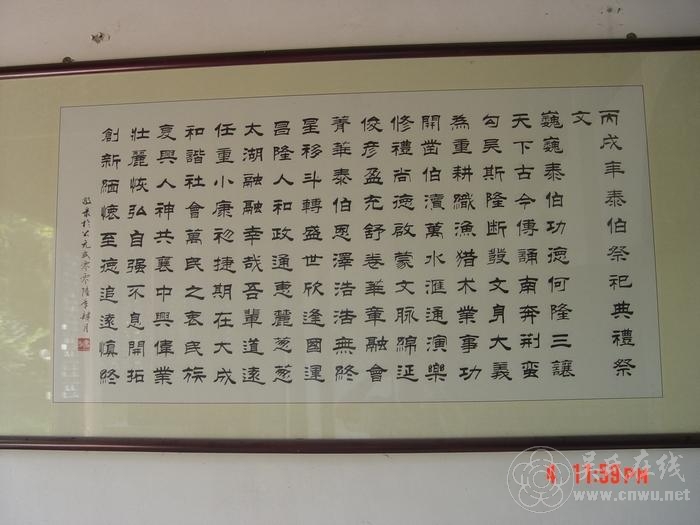 丙戌年泰伯祭祀典禮祭
文
巍巍泰伯功德何隆三讓
天下古今傳誦南奔荆蠻
勾吴斯隆斷髮文身大義
為重耕織漁猎木業事功
開凿伯瀆萬水滙通演樂
修禮尚德啟蒙文脈綿延
俊彦盈充舒卷華章融會
菁華泰伯恩澤浩浩無終
星移斗轉盛世欣逢國運
昌隆人和政通惠麓葱葱
太湖融融幸哉吾輩道遠
任重小康初捷期在大成
和諧社會萬民之衷民族
复興人神共襄中興偉業
壯麗恢弘自强不息開拓
創新緬懷至德追遠慎終
於公元貳零零陸年肆月
4 11:59PM
吴氏在线
www.cnwu.net